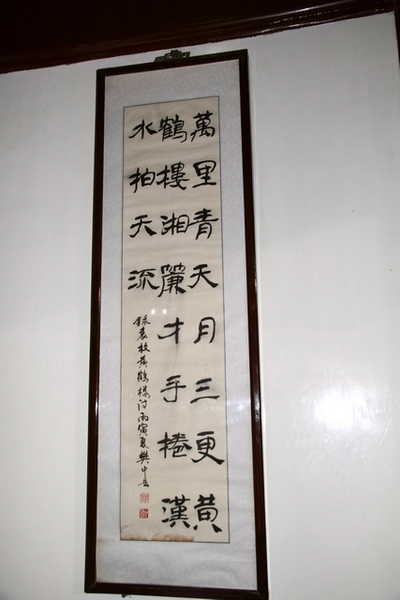 萬里青天月三更黄
鶴樓湘簾才手捲漢
水拍天流
録袁枚黄鶴樓詩丙寅夏樊中岳